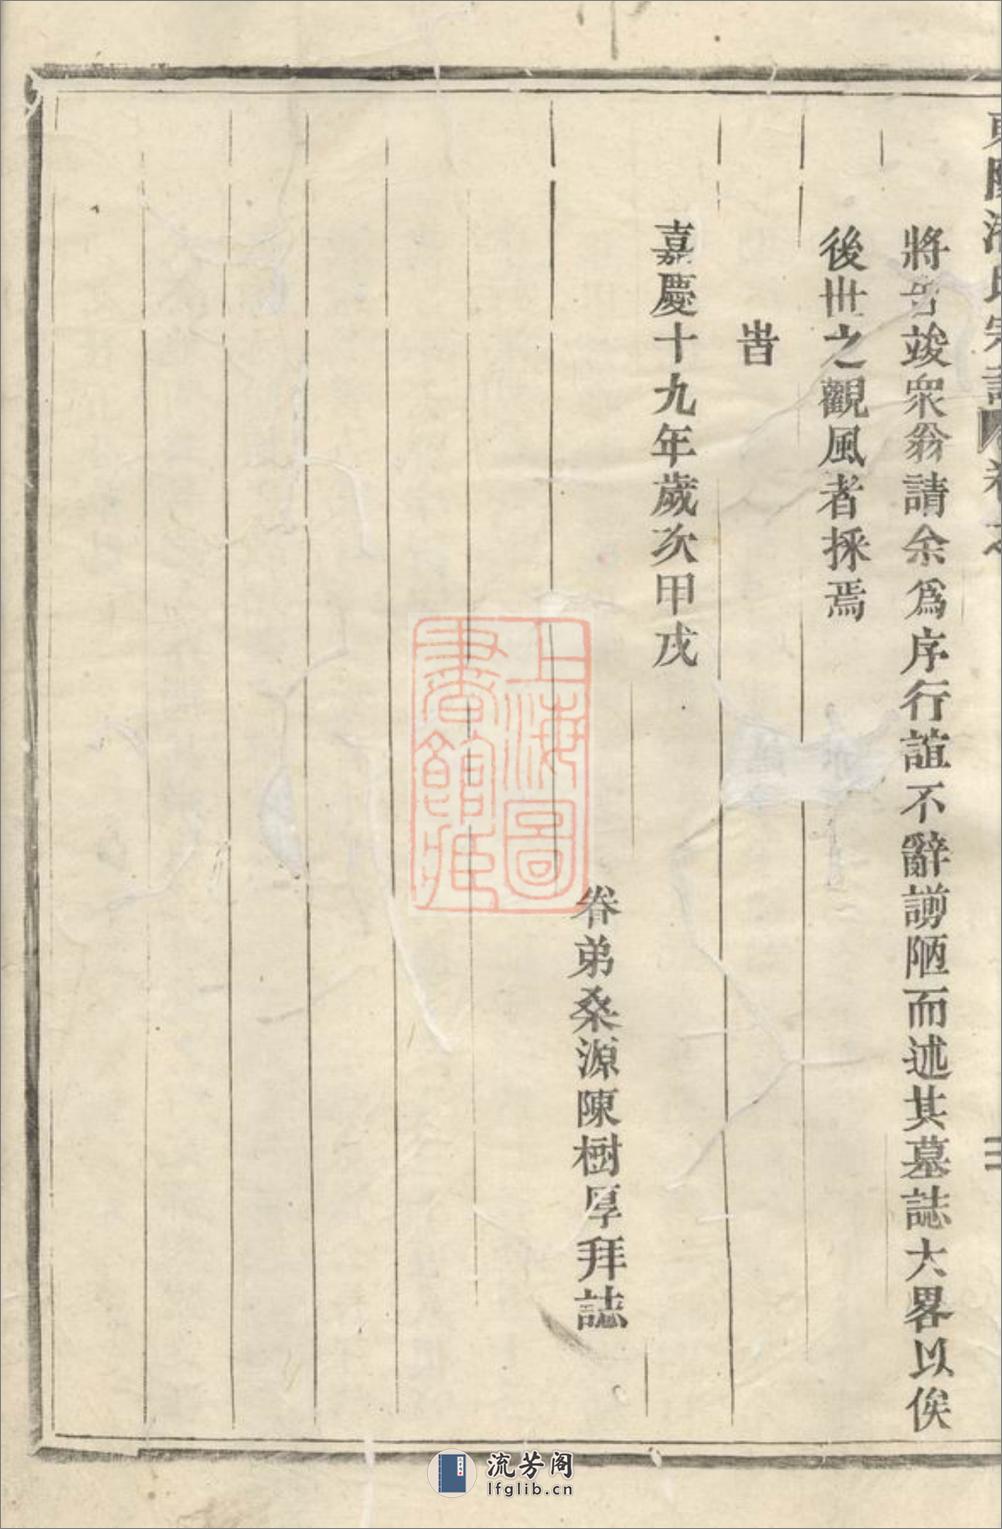 將告竣衆翁請余爲序行誼不辭謭陋而述其墓誌大畧以俟
後世之觀風者採焉
旹
嘉慶十九年歲次甲戌
眷弟桑源陳樹厚拜誌
上海圖
書館藏
流芳阁
lfglib.cn